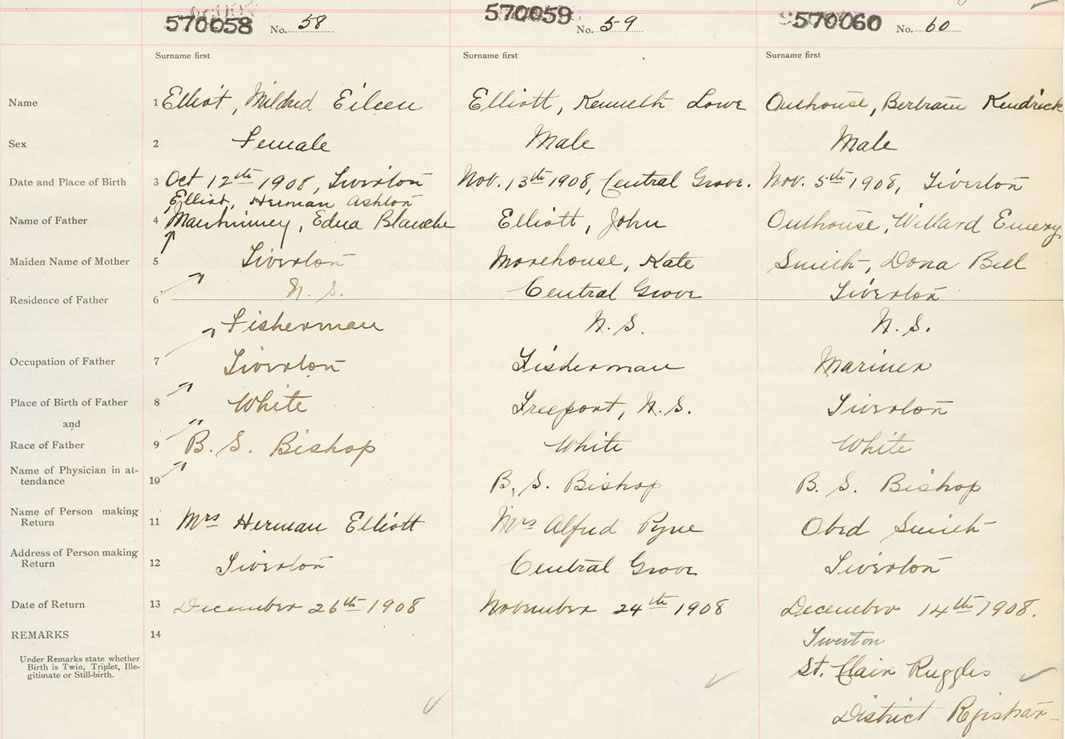 570058 No. 58
570059 No. 59
570060 No. 60
Surname first Surname first Surname first
Name 1 Elliot, Mildred Eileen Elliott, Kenneth Lowe Outhouse, Bertram Kendrick
Sex 2 Female Male Male
Date and Place of Birth 3 Oct 12th 1908, Tiverton Nov. 13th 1908, Central Grove. Nov. 5th 1908, Tiverton
Elliot, Herman Ashton
Name of Father 4 Mawhinney, Edna Blanche Elliott, John Outhouse, Willard Emery
Maiden Name of Mother 5 Tiverton Morehouse, Kate Smith, Dona Bell
Residence of Father 6 N. S. Central Grove Tiverton
Fisherman N. S. N. S.
Occupation of Father 7 Tiverton Fisherman Mariner
Place of Birth of Father 8 White Freeport, N. S. Tiverton
and
Race of Father 9 B. S. Bishop White White
Name of Physician in at-
tendance 10 B. S. Bishop B. S. Bishop
Name of Person making
Return 11 Mrs Herman Elliott Mrs Alfred Pyne Obed Smith
Address of Person making
Return 12 Tiverton Central Grove Tiverton
Date of Return 13 December 26th 1908 November 24th 1908 December 14th 1908.
REMARKS 14 Tiverton
Under Remarks state whether
Birth is Twin, Triplet, Ille-
gitimate or Still-birth.
St. Clair Ruggles
District Registrar